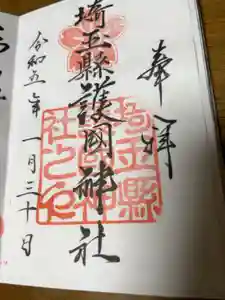 奉拝
埼玉縣護國神社
令和五年一月三十日
埼玉縣
護國神
社之印